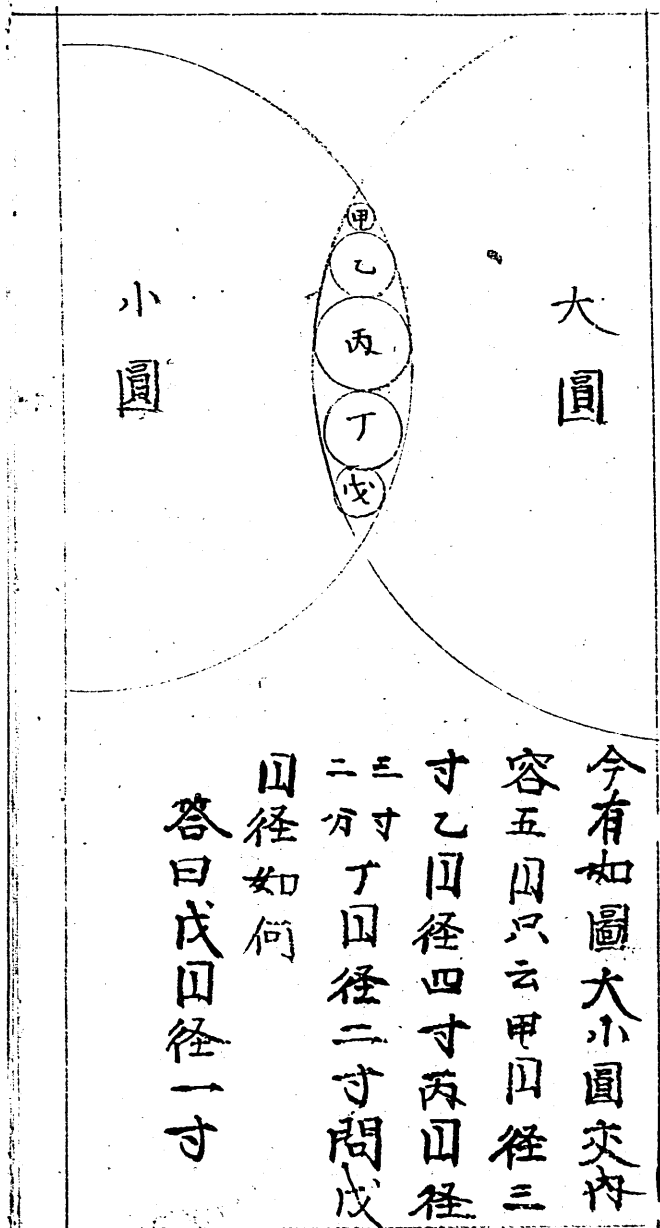 大圓
小圓
甲
乙
丙
丁
戊
今有如圖大小圓交内
容五囗只云甲囗径三
寸乙囗径四寸丙囗径
三寸二分丁囗径二寸問戊
囗径如何
答曰戊囗径一寸